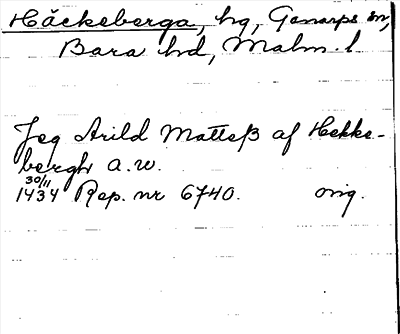 Häckeberga, hg, Genarps sn,
Bara hd, Malm. l.
Jeg Arild Matteß af Hekke-
bergh a.w.
30/11
1434 Rep. nr 6740. orig.